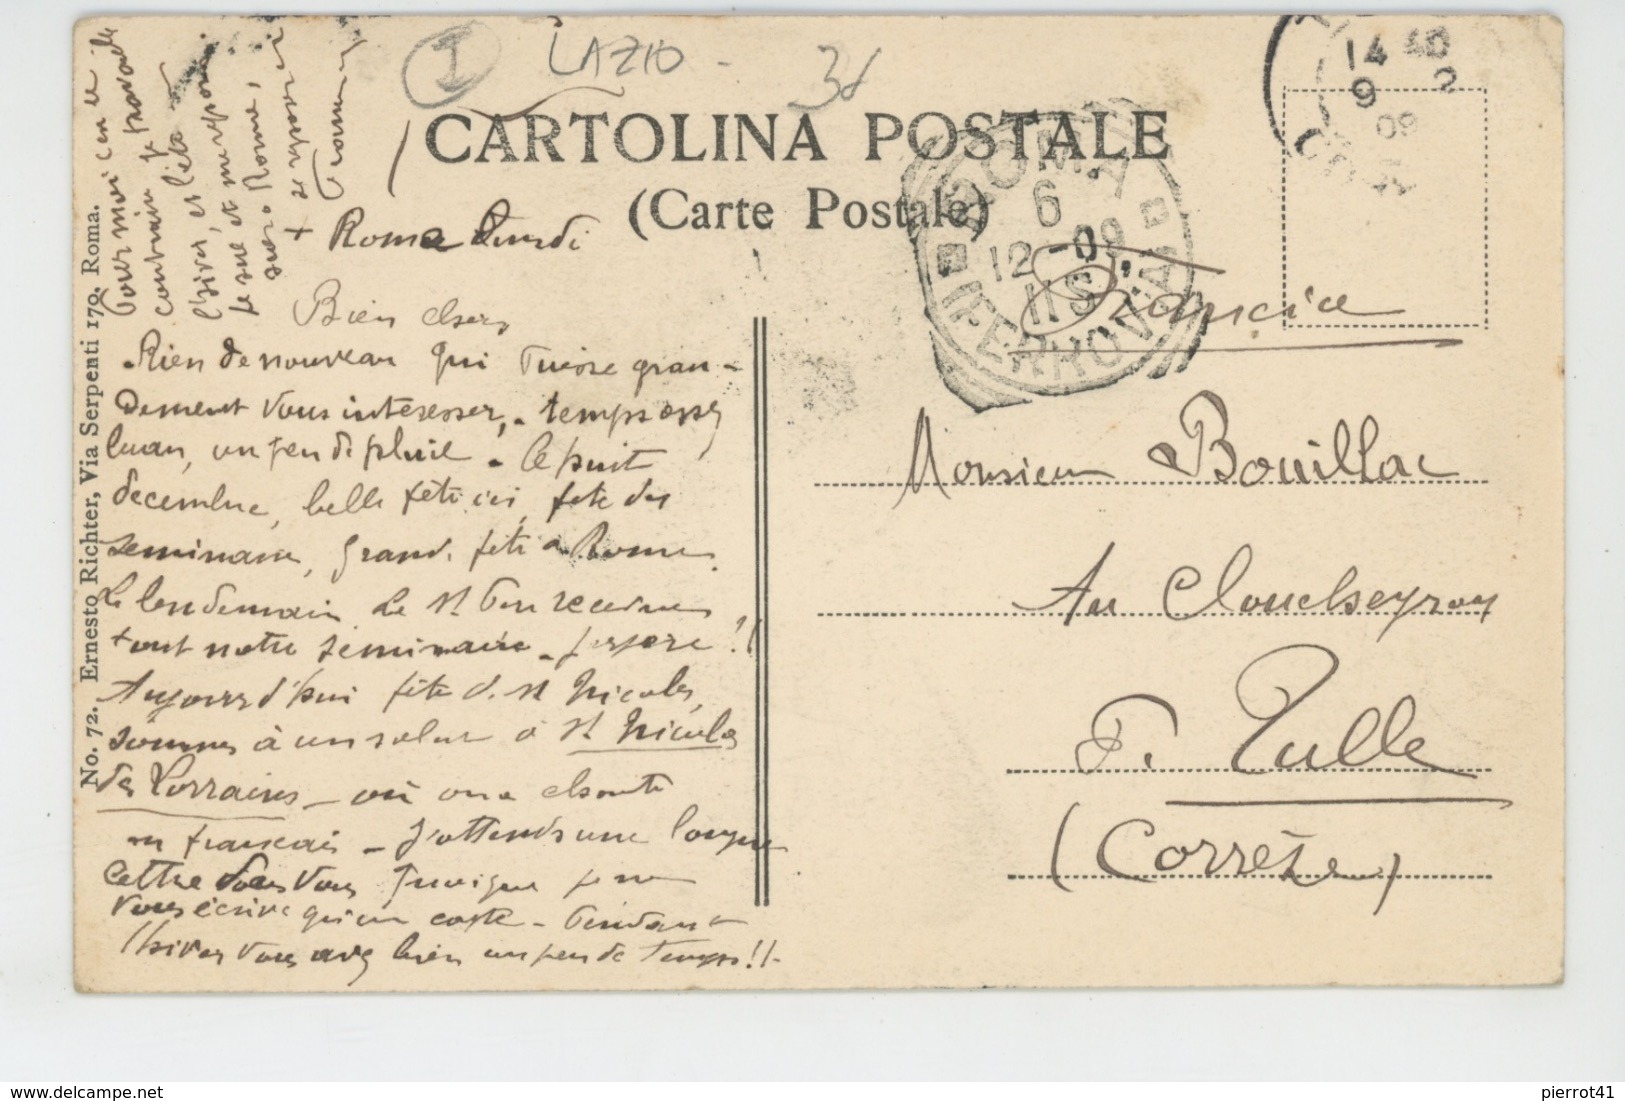 I
LAZIO -
CARTOLINA POSTALE
(Carte Postale)
14 40
9 2
09
ROMA
6
12-09
11S
(FERROVIA)
Pour moi c'en
contraire je travaille
l'hiver, et l'été
je sue et me repose.
+ Roma Lundi
Bien chers
Rien de nouveau qui puisse gran-
dement vous intéresser, - temps assez
beau, un peu de pluie - le huit
decembre, belle fête ici, fete du
seminaire, grande fête à Rome.
Le lendemain le St Pere recevra
tout notre seminaire - !!
Aujourd'hui fête de St Nicolas,
sommes à un salut à St Nicolas
des Lorrains - où on a chanté
en français - J'attends une longue
lettre de vous
vous écrive qu'une carte - Pendant
l'hiver vous avez bien un peu de temps!! -
Francia
Monsieur Bouillac
Au Cloucheyrou
P. Tulle
(Corrèze)
No. 72. Ernesto Richter, Via Serpenti 170, Roma.
pierrot41